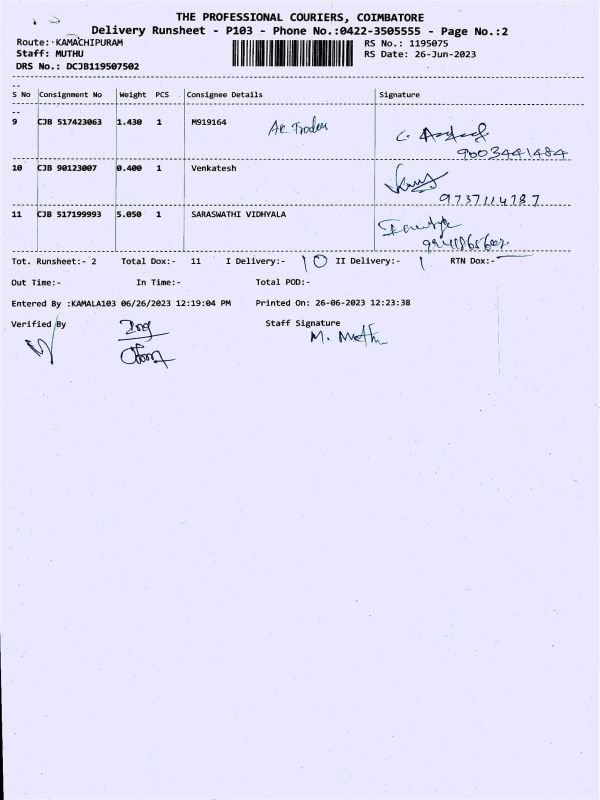 THE PROFESSIONAL COURIERS, COIMBATORE
Delivery Runsheet - P103 - Phone No.:0422-3505555 - Page No.:2
Route: KAMACHIPURAM RS No.: 1195075
Staff: MUTHU RS Date: 26-Jun-2023
DRS No.: DCJB119507502
S No Consignment No Weight PCS Consignee Details Signature
9 CJB 517423063 1.430 1 M919164 AR Traders
9603441484
10 CJB 90123007 0.400 1 Venkatesh
9737114787
11 CJB 517199993 5.050 1 SARASWATHI VIDHYALA
Tot. Runsheet:- 2 Total Dox:- 11 I Delivery:- 10 II Delivery:- 1 RTN Dox:-
Out Time:- In Time:- Total POD:-
Entered By :KAMALA103 06/26/2023 12:19:04 PM Printed On: 26-06-2023 12:23:38
Verified By Staff Signature
M. Muthu